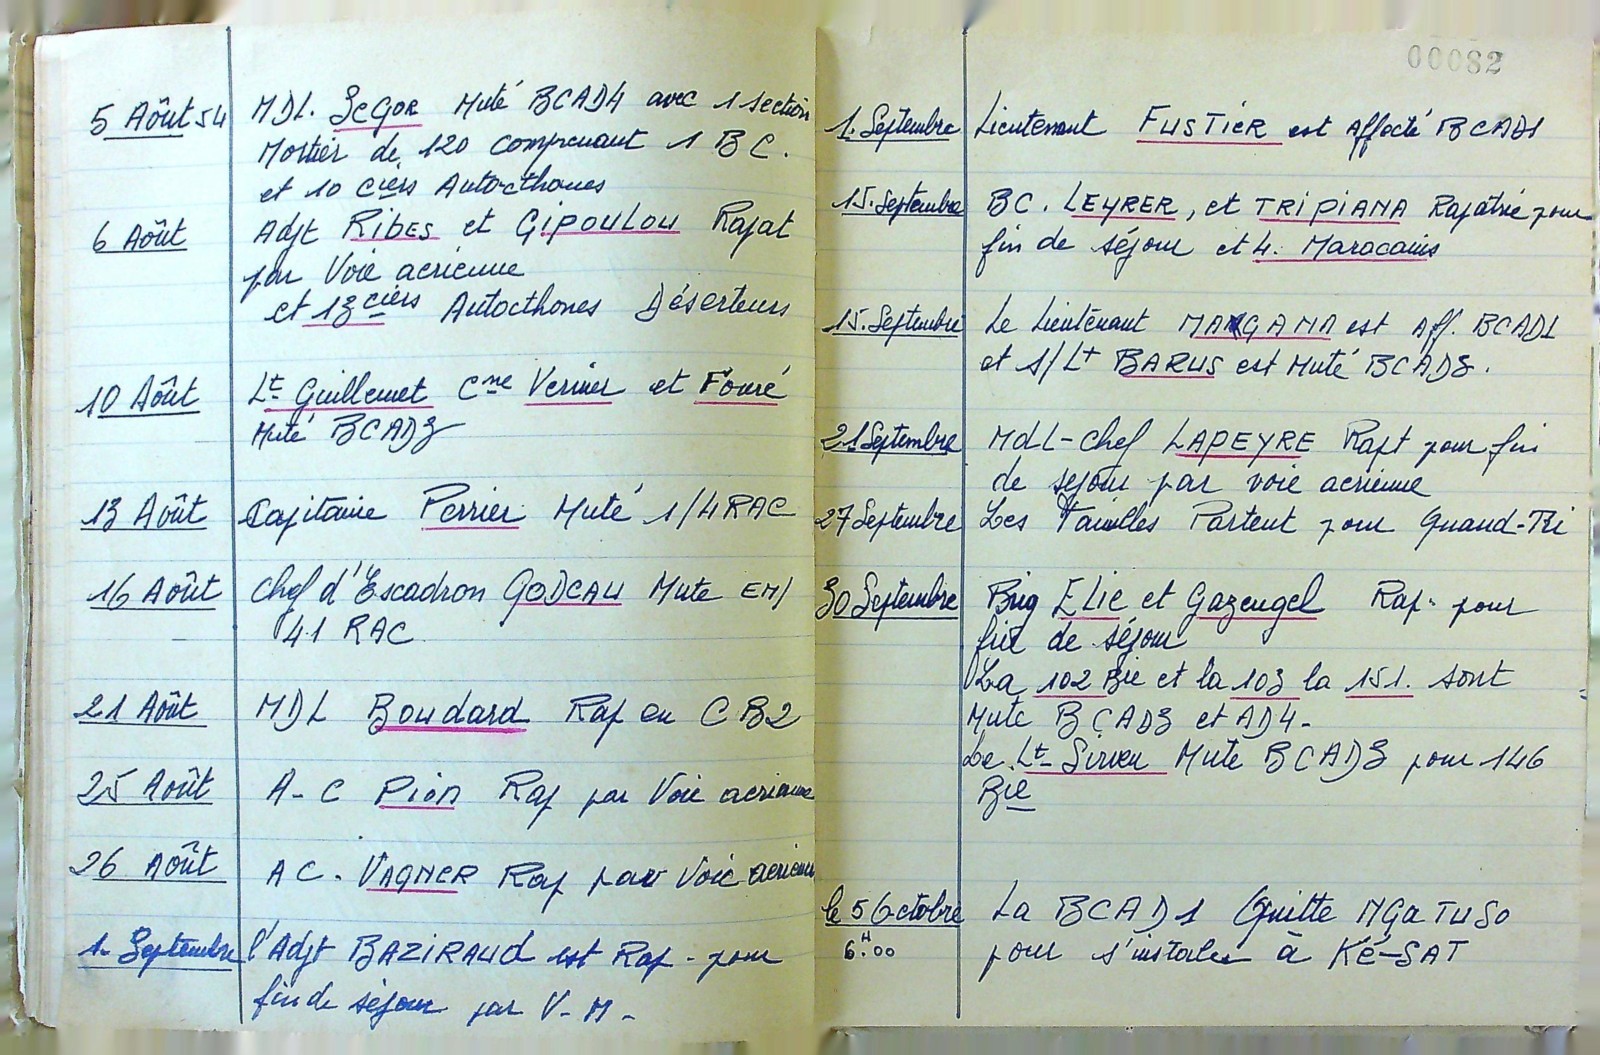 5 Août 54 MDL. SEGOR Muté BCAD4 avec 1 section
Mortier de 120 comprenant 1 BC.
et 10 ciers Autocthones
6 Août Adjt RIBES et GIPOULOU Rapat
par Voie aerienne
et 13 ciers Autocthones Déserteurs
10 Août Lt Guillemet Cne Vernier et Fouré
Muté BCAD3
13 Août Capitaine Perrier Muté 1/4 RAC
16 Août Chef d'Escadron GODEAU Muté EM/
41 RAC
21 Août MDL Boudard Rap en CB2
25 Août A-C Pion Rap par Voie aerienne
26 Août AC. VAGNER Rap par Voie aerienne
1. Septembre l'Adjt BAZIRAUD est Rap. pour
fin de séjour par V-M-
00082
1. Septembre Lieutenant FUSTIER est Affecté BCAD1
15. Septembre BC. LEYRER, et TRIPIANA Rapatrié pour
fin de séjour et 4. Marocains
15. Septembre Le Lieutenant est Aff. BCAD1
et S/Lt BARUS est Muté BCAD3.
21 Septembre MdL-Chef LAPEYRE Rapt pour fin
de sejour par voie aerienne
27 Septembre Les Familles Partent pour Quand-Tri
30 Septembre Brig ELIE et Gazengel Rap. pour
fin de séjour
La 102 Bie et la 103 la 151. sont
Muté BCAD3 et AD4-
Le Lt Sirven Muté BCAD3 pour 146
Bie
le 5 Octobre La BCAD1 Quitte MGA TU SO
6H.00 pour s'installer à KÉ-SAT